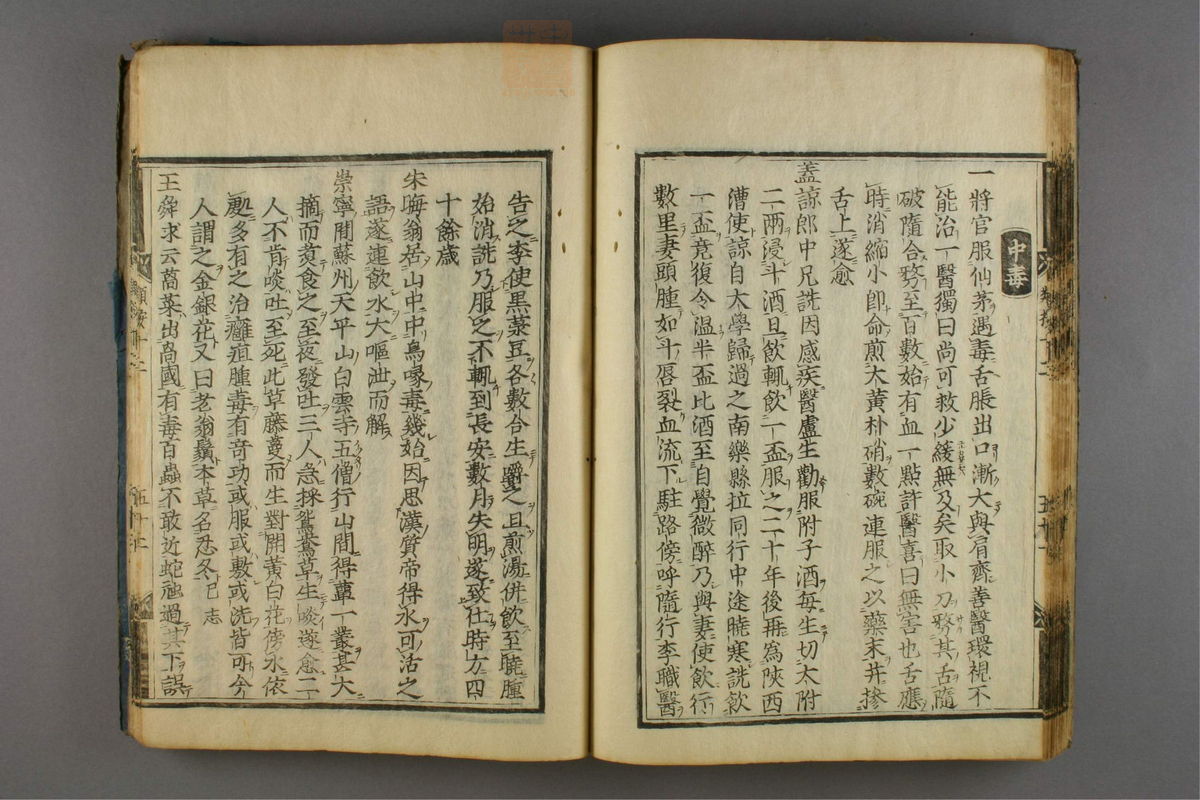 中毒
一將官服仙茅遇毒舌脹出口漸大與肩齊善醫環視不
能治一醫獨曰尚可救少緩無及矣取小刀剺其舌隨
破隨合剺至百數始有血一點許醫喜曰無害也舌應
時消縮小即命煎大黃朴硝數碗連服之以藥末并摻
舌上遂愈
蓋諒郎中兄詵因感疾醫盧生勸服附子酒每生切大附
二兩浸斗酒旦飲輒飲一盃服之二十年後再為陝西
漕使諒自太學歸過之南樂縣拉同行中途曉寒詵飲
一盃竟復令溫半盃比酒至自覺微醉乃與妻使飲行
數里妻頭腫如斗唇裂血流下駐路傍呼隨行李職醫
告之李使黑菉豆各數合生嚼之且煎湯併飲至曉腫
始消詵乃服之不輒到長安數月失明遂致仕時方四
十餘歲
朱晦翁居山中中鳥喙毒幾始因思漢質帝得水可活之
語遂連飲水大嘔泄而解
崇寧間蘇州天平山白雲寺五僧行山間得蕈一叢甚大
摘而煑食之至夜發吐三人急採鴛鴦草生啖遂愈二
人不肯啖吐至死此草藤蔓而生對開黃白花傍水依
處多有之治癰疽腫毒有奇功或服或敷或洗皆可今
人謂之金銀花又曰老翁鬚本草名忍冬 已志
王舜求云萵菜出萵國有毒百蟲不敢近蛇虺過其下誤